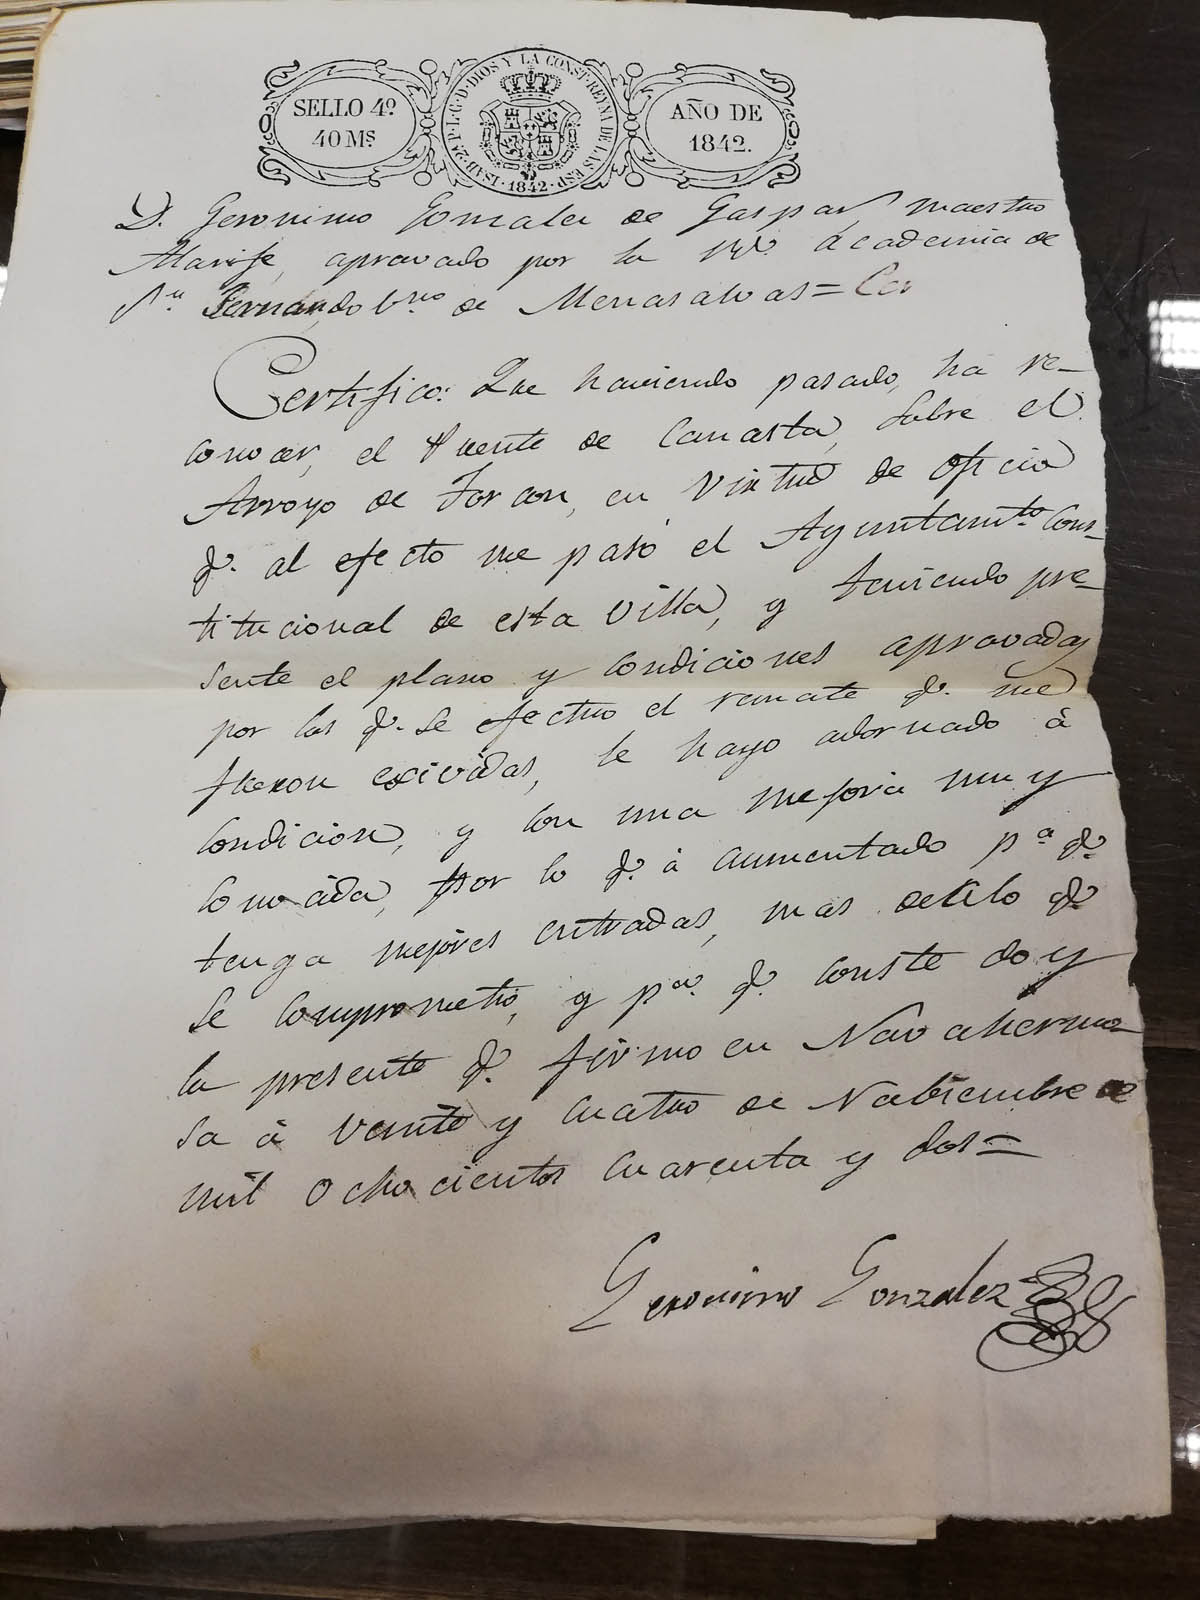 SELLO 4º.
40 Mˢ.
ISAB. 2ª. P. L. G. D. DIOS Y LA CONST. REYNA DE LAS ESP. 1842
AÑO DE
1842.
D. Geronimo Gonzalez de Gaspar, maestro
Alarife, apravado por la Rˡ. Academia de
Sⁿ. Fernando Vᶜⁿᵒ de Menasalvas = Cer
Certifico: Que haviendo pasado, ha re-
conocer, el Puente de Canasta, sobre el
Arroyo de Torcon, en virtud de oficio
qᵉ. al efecto me pasó el Ayuntamᵗᵒ Cons-
titucional de esta Villa, y teniendo pre-
sente el plano y condiciones apravadas
por las qᵉ. se efectuo el remate qᵉ. me
fueron exividas, le hayo adornado á
condicion, y con una mejora muy
conocida, por lo qᵉ. à aumentado pª. qᵉ.
tenga mejores entradas, mas de lo qᵉ
se comprometio, y pª. qᵉ. conste doy
la presente qᵉ. firmo en Navahermo
sa á veinte y cuatro de Nobiembre de
mil ochocientos cuarenta y dos =
Geronimo Gonzalez